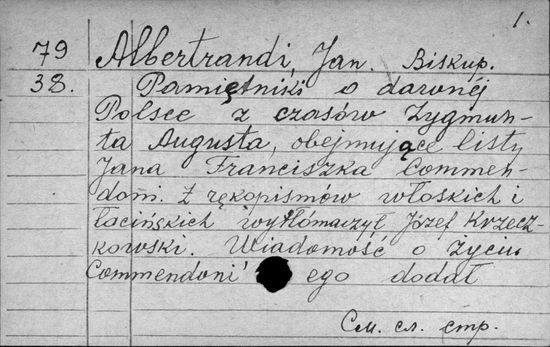 1.
79 Albertrandi, Jan. Biskup.
38. Pamiętniki o dawnéj
Polsce z czasów Zygmun-
ta Augusta, obejmujące listy
Jana Franciszka Commen-
doni. Z rękopismów włoskich i
łacińskich wytłómaczył Józef Krzecz-
kowski. Wiadomość o życiu
Commendoni'ego dodał
См. сл. стр.